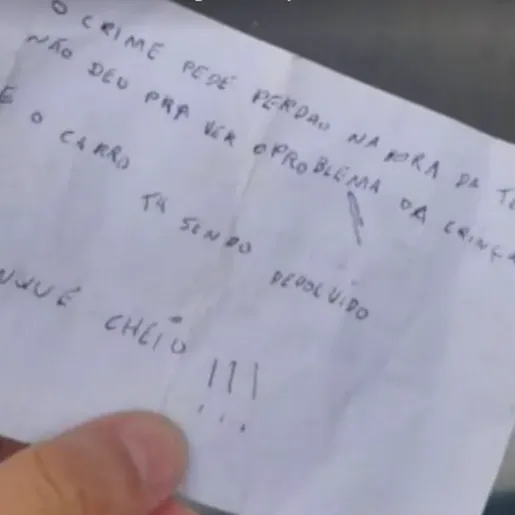 O CRIME PEDE PERDÃO NA HORA DA TE
NÃO DEU PRA VER O PROBLEMA DA CRINÇA
E O CARRO
TA SENDO DEVOLVIDO
NQUE CHEIO !!!